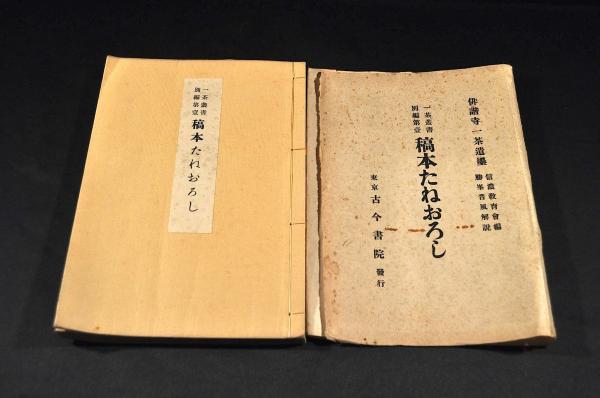 一茶叢書
別編第壹
稿本たねおろし
俳諧寺一茶遺墨
信濃教育會編
勝峯晋風解説
一茶叢書
別編第壹
稿本たねおろし
東京 古今書院 發行